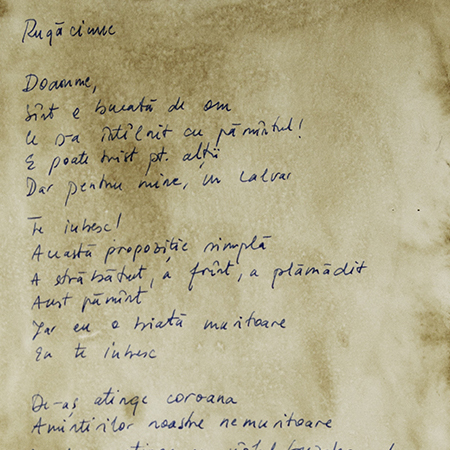 Rugăciune
Doamne,
sînt o bucată de om
Ce s-a întâlnit cu pământul!
E poate trist pt. alții
Dar pentru mine, un calvar
Te iubesc!
Această propoziție simplă
A străbătut, a frînt, a plămădit
Acest pămînt
Iar eu o biată muritoare
Eu te iubesc
De-aș atinge coroana
Amintirilor noastre nemuritoare